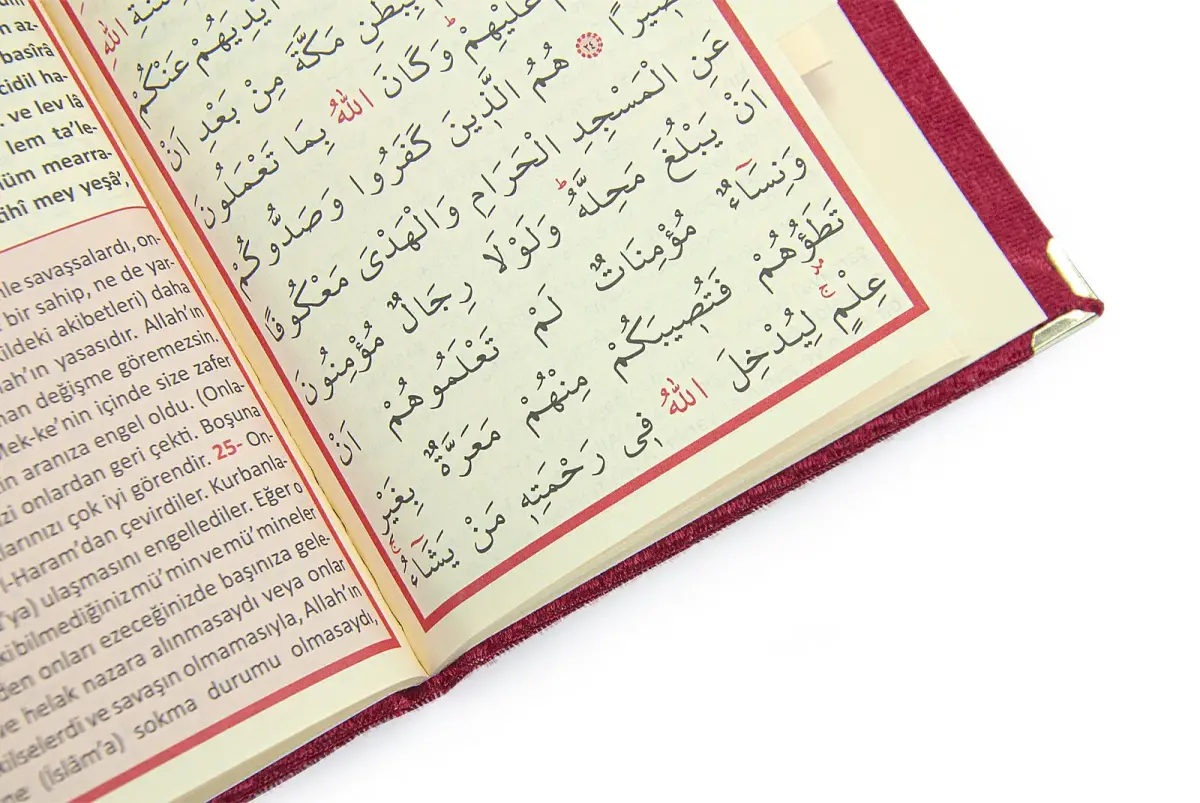 n az-
basîrâ
cidil ha-
. ve lev lâ
lem ta'le-
hüm mearra-
tihî mey yeşâ',
nle savaşsalardı, on-
bir sahip, ne de yar-
kildeki akibetleri) daha
lah'ın yasasıdır. Allah'ın
man değişme göremezsin.
Mek-ke'nin içinde size zafer
in aranıza engel oldu. (Onla-
izi onlardan geri çekti. Boşuna
larınızı çok iyi görendir. 25- On-
l-Haram'dan çevirdiler. Kurbanla-
'ya) ulaşmasını engellediler. Eğer o
ki bilmediğiniz mü'min ve mü'mineler
den onları ezeceğinizde başınıza gele-
ve helak nazara alınmasaydı veya onlar
kilselerdi ve savaşın olmamasıyla, Allah'ın
ne (İslâm'a) sokma durumu olmasaydı,
اللّٰهِ
اَيْدِيَهُمْ عَنْكُمْ
بِبَطْنِ مَكَّةَ مِنْ بَعْدِ اَنْ
عَلَيْهِمْ وَكَانَ اللّٰهُ بِمَا تَعْمَلُونَ
بَصٖيرًا ﴿٢٤﴾ هُمُ الَّذٖينَ كَفَرُوا وَصَدُّوكُمْ
عَنِ الْمَسْجِدِ الْحَرَامِ وَالْهَدْىَ مَعْكُوفًا
اَنْ يَبْلُغَ مَحِلَّهُ وَلَوْلَا رِجَالٌ مُؤْمِنُونَ
وَنِسَٓاءٌ مُؤْمِنَاتٌ لَمْ تَعْلَمُوهُمْ اَنْ
تَطَؤُهُمْ فَتُصٖيبَكُمْ مِنْهُمْ مَعَرَّةٌ بِغَيْرِ
عِلْمٍ لِيُدْخِلَ اللّٰهُ فٖى رَحْمَتِهٖ مَنْ يَشَٓاءُ